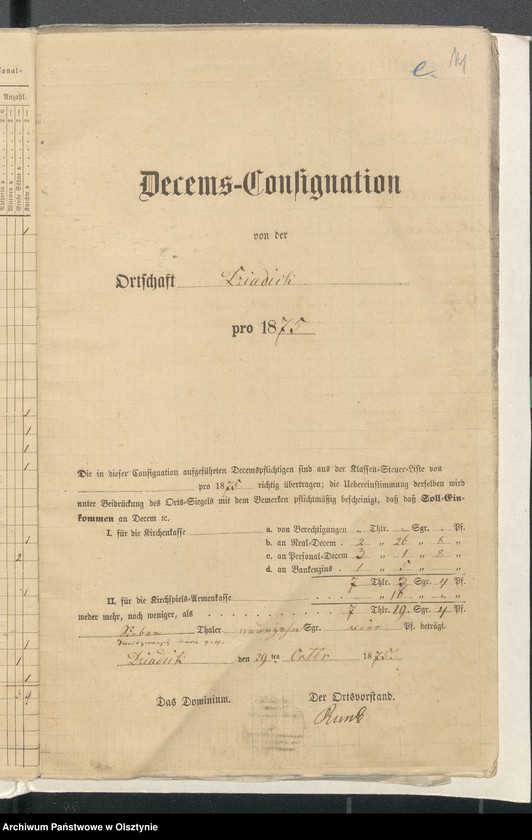 onal=
Anzahl.
e.
Decems-Consignation
von der
Ortschaft Dziadick
pro 1875
Die in dieser Consignation aufgeführten Decemspflichtigen sind aus der Klassen-Steuer-Liste von
pro 1875 richtig übertragen; die Uebereinstimmung derselben wird
unter Beidrückung des Orts-Siegels mit dem Bemerken pflichtmäßig bescheinigt, daß daß Soll-Ein-
kommen an Decem ꝛc.
I. für die Kirchenkasse a. von Berechtigungen „ Thlr. „ Sgr. „ Pf.
b. an Real-Decem . 2 „ 26 „ 8 „
c. an Personal-Decem 3 „ 1 „ 8 „
d. an Bankenzins . 1 „ 5 „ „
7 Thlr. 3 Sgr. 4 Pf.
II. für die Kirchspiels-Armenkasse „ 16 „ „
weder mehr, noch weniger, als 7 Thlr. 19 Sgr. 4 Pf.
Sieben Thaler neunzehn Sgr. vier Pf. beträgt.
Dziadick den 29ten Octbr 1875.
Das Dominium. Der Ortsvorstand.
Archiwum Państwowe w Olsztynie